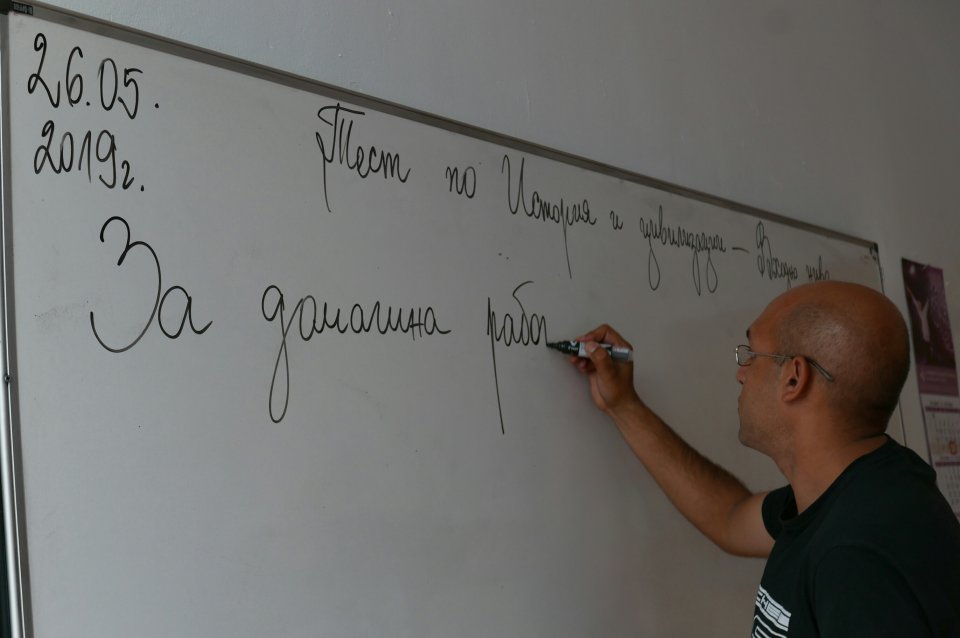 26.05.
2019г.
Тест по История и цивилизации –
За домашна рабо